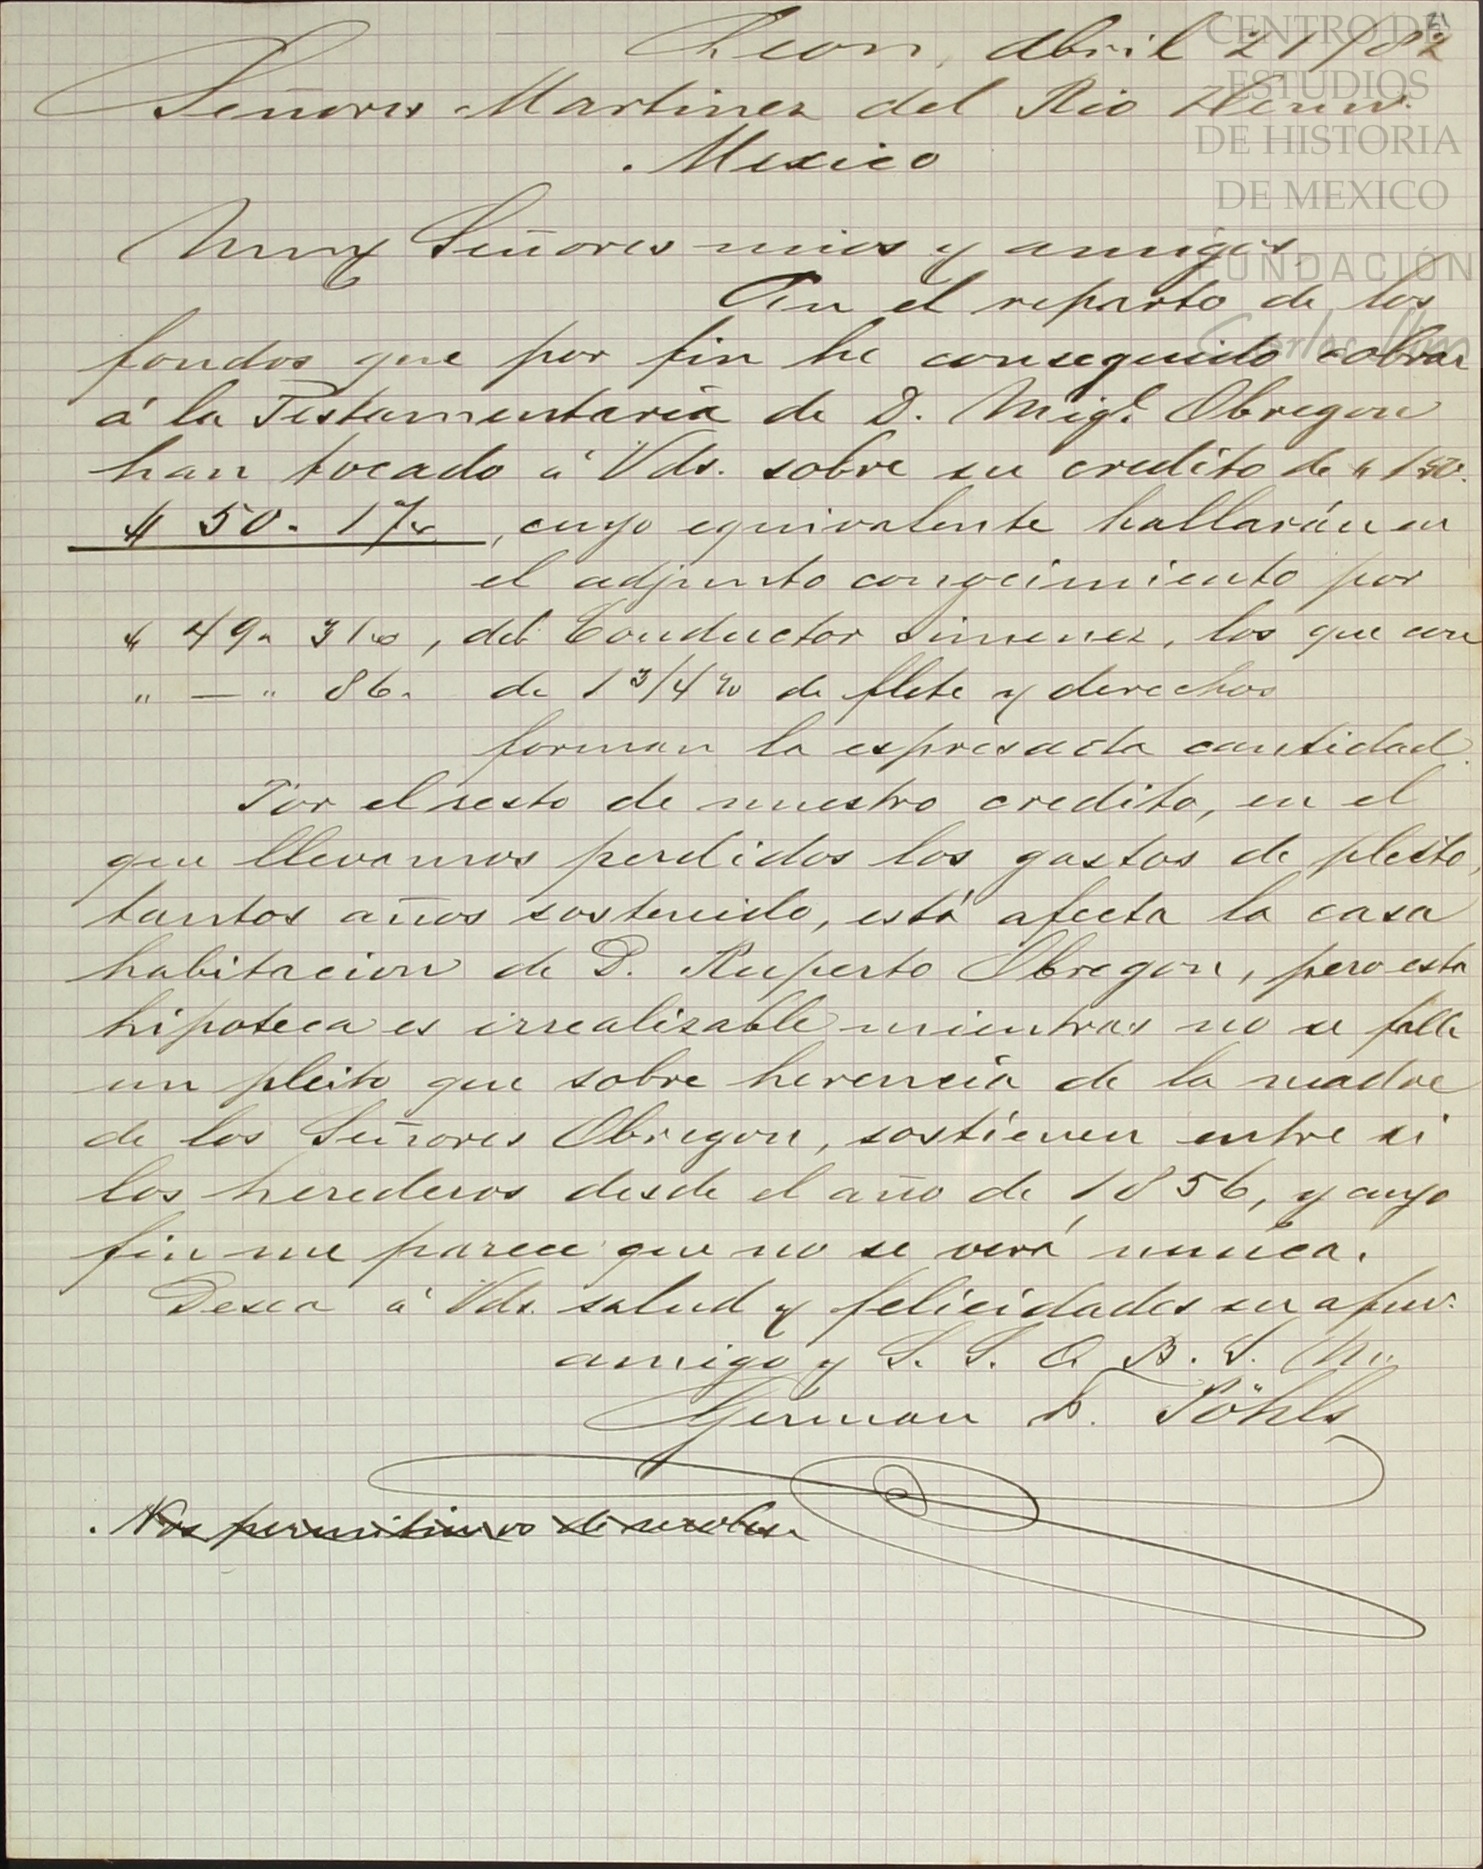 Leon, Abril 21/82
Señores Martinez del Rio Hermo.
Mexico
Muy Señores mios y amigos,
En el reparto de los
fondos que por fin he conseguido cobrar
á la Testamentaría de D. Migl. Obregon
han tocado á Vds. sobre su credito de
$ 50. 17c, cuyo equivalente hallarán en
el adjunto conocimiento por
" 49. 31c, del Conductor Jimenez, los que con
" — " 86. de 1 3/4 % de flete y derechos
forman la espresada cantidad.
Por el resto de nuestro credito, en el
que llevamos perdidos los gastos de pleito,
tantos años sostenido, está afecta la casa
habitacion de D. Ruperto Obregon, pero esta
hipoteca es irrealizable mientras no se falle
un pleito que sobre herencia de la madre
de los Señores Obregon, sostienen entre si
los herederos desde el año de 1856, y cuyo
fin me parece que no se verá nunca.
Desea á Vds. salud y felicidades su afmo.
amigo y S. S. Q. B. S. M.
German F. Pöhls
Nos permitimos
CENTRO DE
ESTUDIOS
DE HISTORIA
DE MEXICO
FUNDACIÓN
Carlos Slim